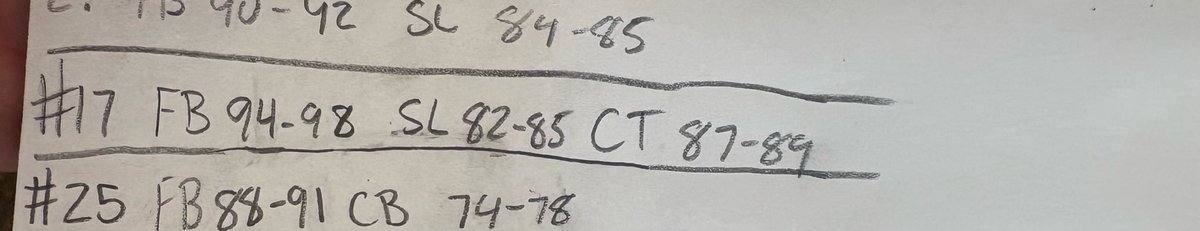 FB 90-92 SL 84-85
#17 FB 94-98 SL 82-85 CT 87-89
#25 FB 88-91 CB 74-78